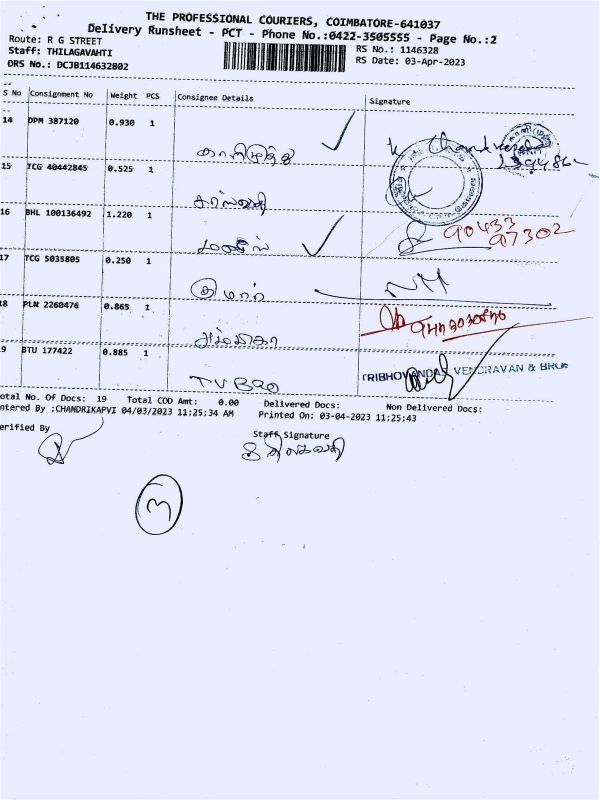 THE PROFESSIONAL COURIERS, COIMBATORE-641037
Delivery Runsheet - PCT - Phone No.:0422-3505555 - Page No.:2
Route: R G STREET
RS No.: 1146328
Staff: THILAGAVAHTI
RS Date: 03-Apr-2023
DRS No.: DCJB114632802
S No Consignment No Weight PCS Consignee Details Signature
14 DPM 387120 0.930 1
காளிமுத்து
15 TCG 40442845 0.525 1
சரஸ்வதி
16 BHL 100136492 1.220 1
90433
97302
17 TCG 5035805 0.250 1
குமார் NM
18 PLN 2260476 0.865 1
அம்பிகா
9 BTU 177422 0.885 1
TRIBHOVANDAS VENDRAVAN & BROS
TV Bro
otal No. Of Docs: 19 Total COD Amt: 0.00 Delivered Docs: Non Delivered Docs:
ntered By :CHANDRIKAPVI 04/03/2023 11:25:34 AM Printed On: 03-04-2023 11:25:43
erified By
Staff Signature
திலகவதி
3